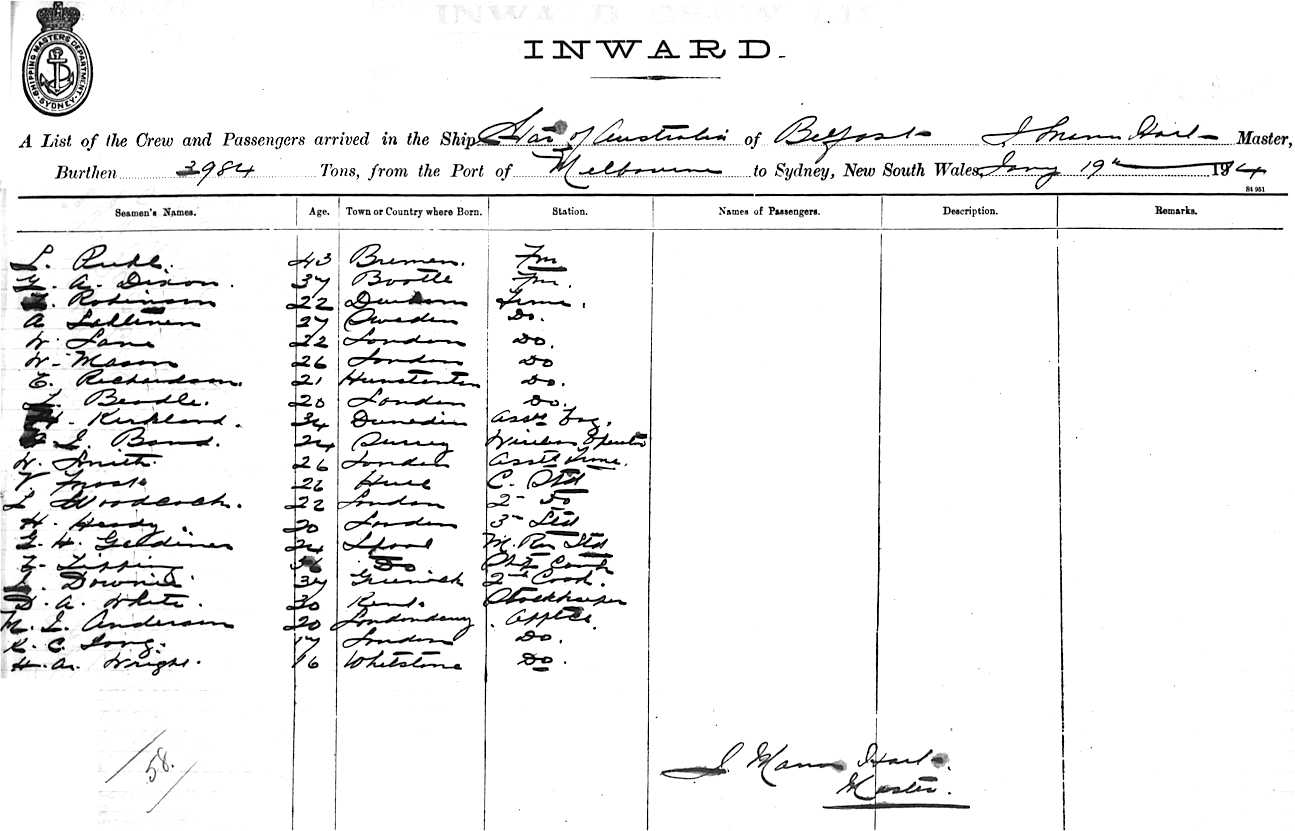 SHIPPING MASTERS DEPARTMENT SYDNEY
INWARD.
A List of the Crew and Passengers arrived in the Ship Star of Australia of Belfast Hart Master,
Burthen 3984 Tons, from the Port of Melbourne to Sydney, New South Wales, Jany 19th 1914
Seamen's Names. Age. Town or Country where Born. Station. Names of Passengers. Description. Remarks.
43 Bremen. Fm
G. A. Dixon. 37 Bootle Fm.
Robinson 22 Durham Trimr.
A 27 Sweden Do.
W. Lane 22 London Do.
W. Mason 26 London Do
E. Richardson. 21 Hunstanton Do.
Beadle. 20 London Do.
H. Kirkland. 34 Dunedin Asst
J. Band. 24 Surrey Wireless Operator
W. Smith. 26 London Asst
V. Frost 26 Hull C. Std
L Woodcock. 22 London 2nd Do
H. Hendy. 20 London 3rd Std
G. H. 24 Lpool M. Rm Std
Tipping Do Cook
Downie. 37 Greenock 2nd Cook.
D. A. White. 30 Kent. Storekeeper
M. J. Anderson 20 Londonderry Apptce.
K. C. Long. 17 London Do.
H. A. Wright. 16 Whitstone Do.
58.
J. Hart.
Master.